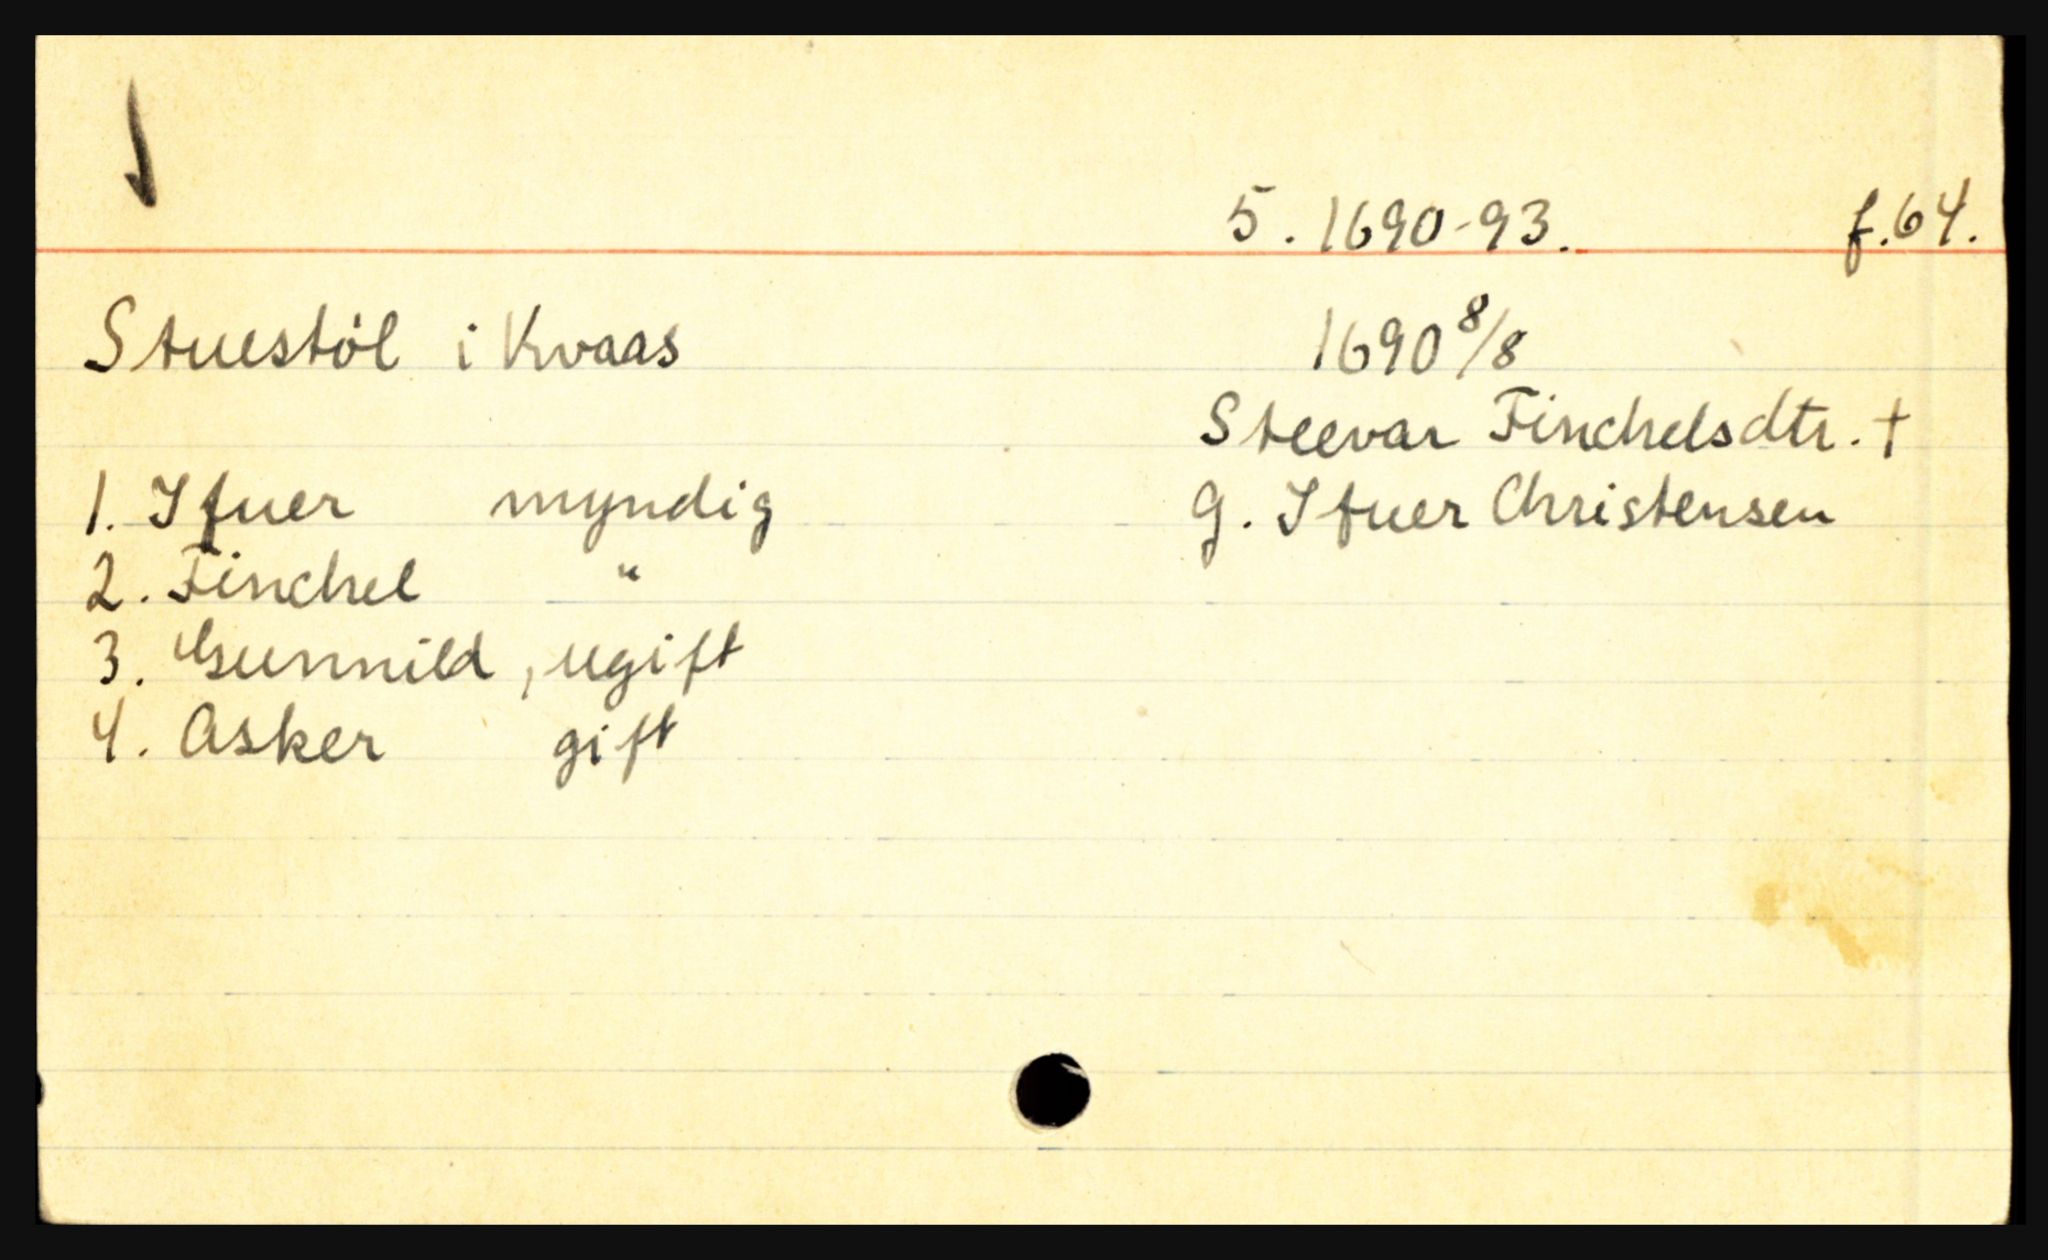 5. 1690-93. f.64.
Stuestøl i Kvaas 1690 8/8
Steevar Finchelsdtr. †
1. Ifuer myndig g. Ifuer Christensen
2. Finchel "
3. Gunnild, ugift
4. Asker gift